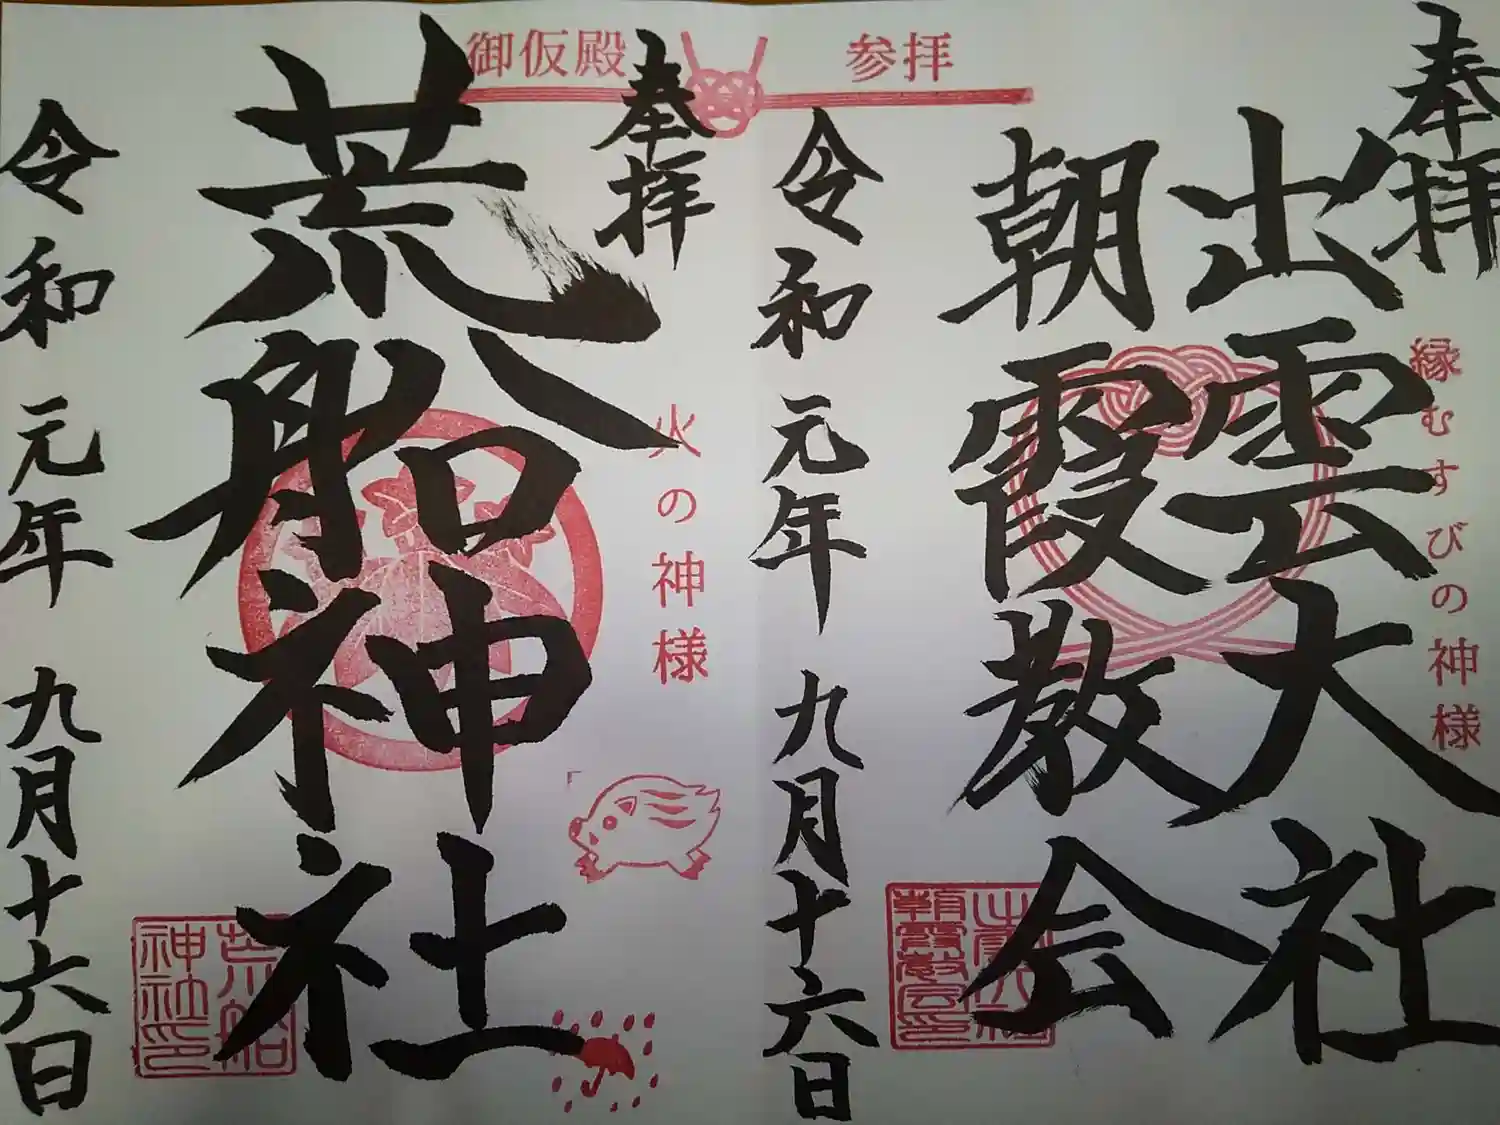 奉拝
縁むすびの神様
出雲大社
朝霞教会
出雲大社
朝霞教会印
令和元年 九月十六日
御仮殿 参拝
奉拝
火の神様
荒船神社
荒船
神社印
令和元年 九月十六日